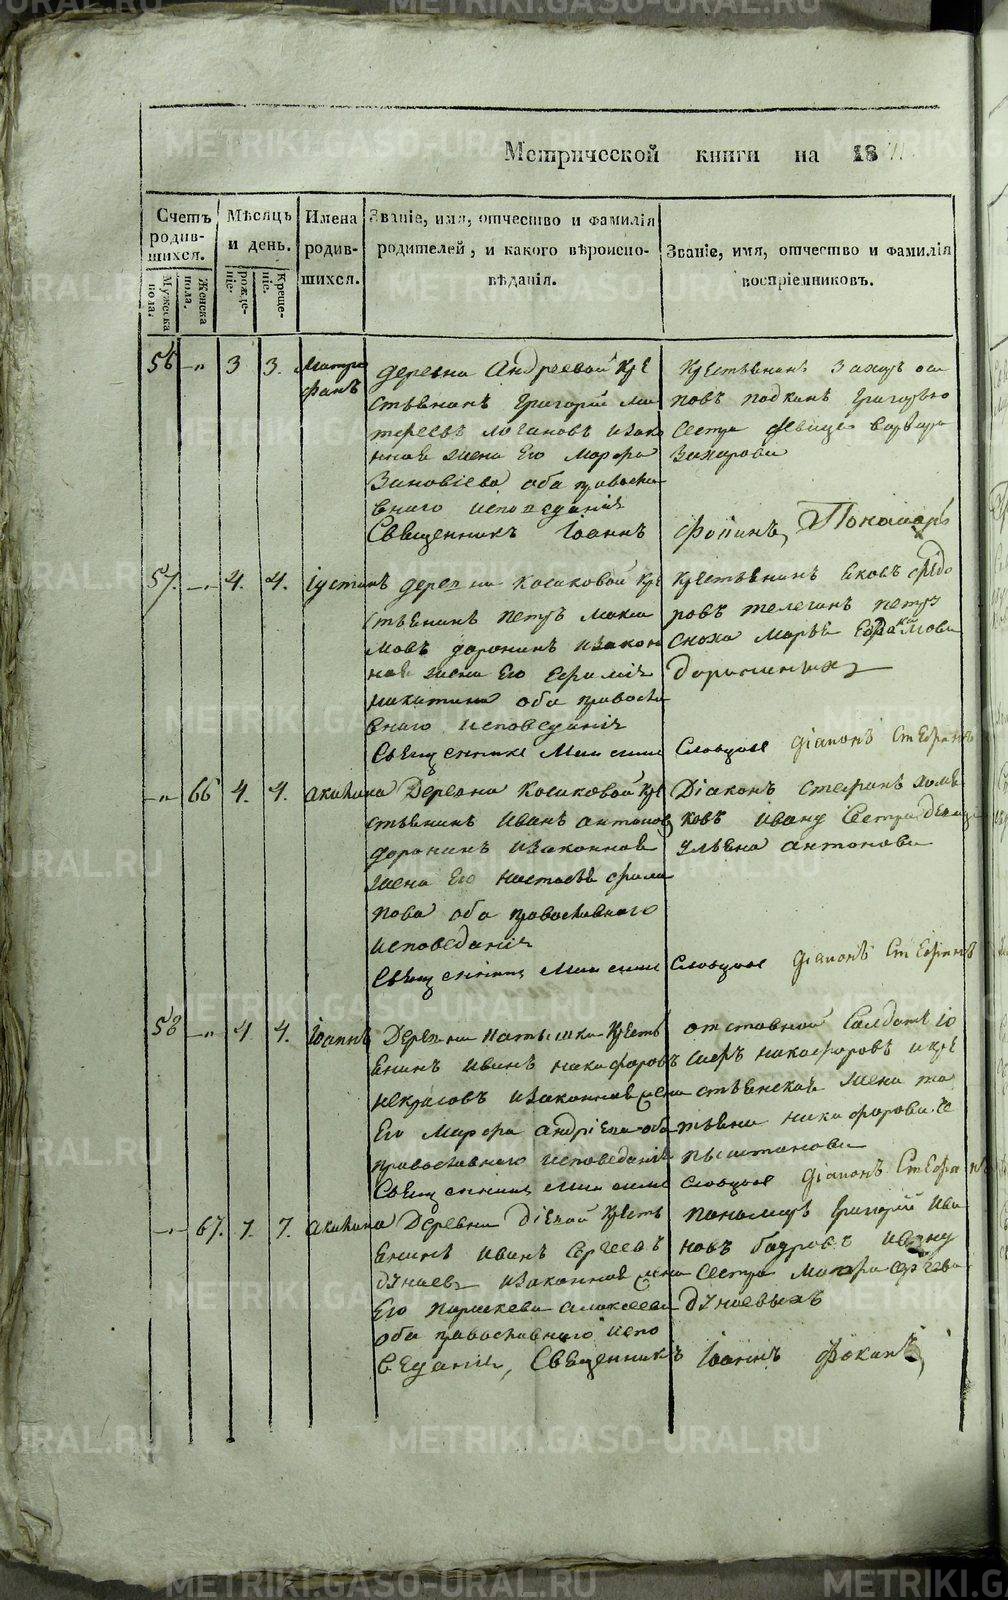 METRIKI.GASO-URAL.RU
Метрической книги на 18
Счетъ родившихся.
Мужеска пола.
Женска пола.
Мѣсяцъ и день.
рожденіе.
Крещеніе.
Имена родившихся.
Званіе, имя, отчество и фамилія родителей, и какого вѣроисповѣданія.
Званіе, имя, отчество и фамилія воспріемниковъ.
56 -"- 3 3.
деревни Андреевой кре
стьянинъ Григорій Ма
логиновъ изако
нная жена Его Марфа
Зиновіева оба правосла
внаго исповеданія
Священникъ Іоаннъ Фокинъ, Пономарь
Крестьянинъ Захаръ
Григорью
Сестра девица Варвара
Захарова
57. -"- 4. 4. Іустинъ
деревни Косиковой кре
стьянинъ Петръ Макси
мовъ доронинъ изакон
ная жена Его
никитина оба правосла
внаго исповеданія
Крестьянинъ Яковъ Федо
ровъ телегинъ петру
сноха Марья
дорониныхъ
Словцовъ діаконъ Стефанъ
-"- 66 4. 4. акилина
Деревни Косиковой кре
стьянинъ Иванъ антоновъ
доронинъ изаконная
жена Его настасья фили
пова оба православнаго
исповеданія
Діаконъ Стефанъ хомя
ковъ Ивану Сестра девица
ульяна антонова
Словцовъ діаконъ Стефанъ
58 -"- 4 4. Іоаннъ
Деревни кресть
янинъ Иванъ никифоровъ
некрасовъ изаконная жена
Его Марфа андріева оба
православнаго исповеданія
отставной Салдатъ Іо
сифъ никифоровъ и кре
стьянская жена та
тьяна никифорова
Словцовъ діаконъ Стефанъ
-"- 67. 7. 7. акилина
Деревни кресть
янинъ Иванъ Сергеевъ
дунаевъ изаконная жена
Его Параскева алексеева
оба православнаго испо
веданія, Священникъ Іоаннъ Фокинъ,
пономарь Григорій Ива
новъ бодровъ Ивану
Сестра Марфа сергеева
дунаевыхъ